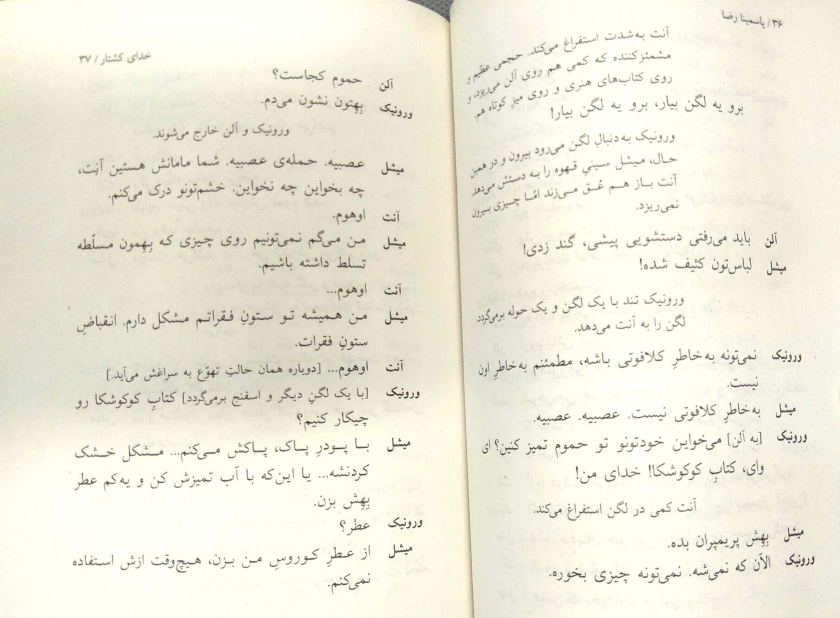 ۳۶/ یاسمینا رضا
آنت به‌شدت استفراغ می‌کند. حجمی عظیم و
مشمئزکننده که کمی هم روی آلن می‌ریزد، و
روی کتاب‌های هنری و روی میز کوتاه هم.
برو یه لگن بیار، برو یه لگن بیار!
ورونیک به دنبالِ لگن می‌رود بیرون و در همین
حال، میشل سینیِ قهوه را به دستش می‌دهد.
آنت باز هم عُق می‌زند امّا چیزی بیرون
نمی‌ریزد.
آلن باید می‌رفتی دستشویی پیشی، گند زدی!
میشل لباس‌تون کثیف شده!
ورونیک تند با یک لگن و یک حوله برمی‌گردد.
لگن را به آنت می‌دهد.
ورونیک نمی‌تونه به خاطرِ کلافوتی باشه، مطمئنم به‌خاطرِ اون
نیست.
میشل به‌خاطرِ کلافوتی نیست. عصبیه. عصبیه.
ورونیک [به آلن] می‌خواین خودتونو تو حموم تمیز کنین؟ ای
وای، کتابِ کوکوشکا! خدای من!
آنت کمی در لگن استفراغ می‌کند.
میشل بِهِش پریمپران بده.
ورونیک الآن که نمی‌شه. نمی‌تونه چیزی بخوره.
خدای کشتار / ۳۷
آلن حموم کجاست؟
ورونیک بِهِتون نشون می‌دم.
ورونیک و آلن خارج می‌شوند.
میشل عصبیه. حمله‌ی عصبیه. شما مامانش هستین آنِت،
چه بخواین چه نخواین. خشم‌تونو درک می‌کنم.
آنت اوهوم.
میشل من می‌گم نمی‌تونیم روی چیزی که بِهِمون مسلّطه
تسلط داشته باشیم.
آنت اوهوم...
میشل من همیشه تو ستونِ فقراتم مشکل دارم. انقباضِ
ستونِ فقرات.
آنت اوهوم... [دوباره همان حالتِ تهوّع به سراغش می‌آید.]
ورونیک [با یک لگنِ دیگر و اسفنج برمی‌گردد] کتابِ کوکوشکا رو
چیکار کنیم؟
میشل با پودرِ پاک، پاکش می‌کنم... مشکل خشک
کردنشه... یا این‌که با آب تمیزش کن و یه‌کم عطر
بِهِش بزن.
ورونیک عطر؟
میشل از عطرِ کوروسِ من بزن، هیچ‌وقت ازش استفاده
نمی‌کنم.